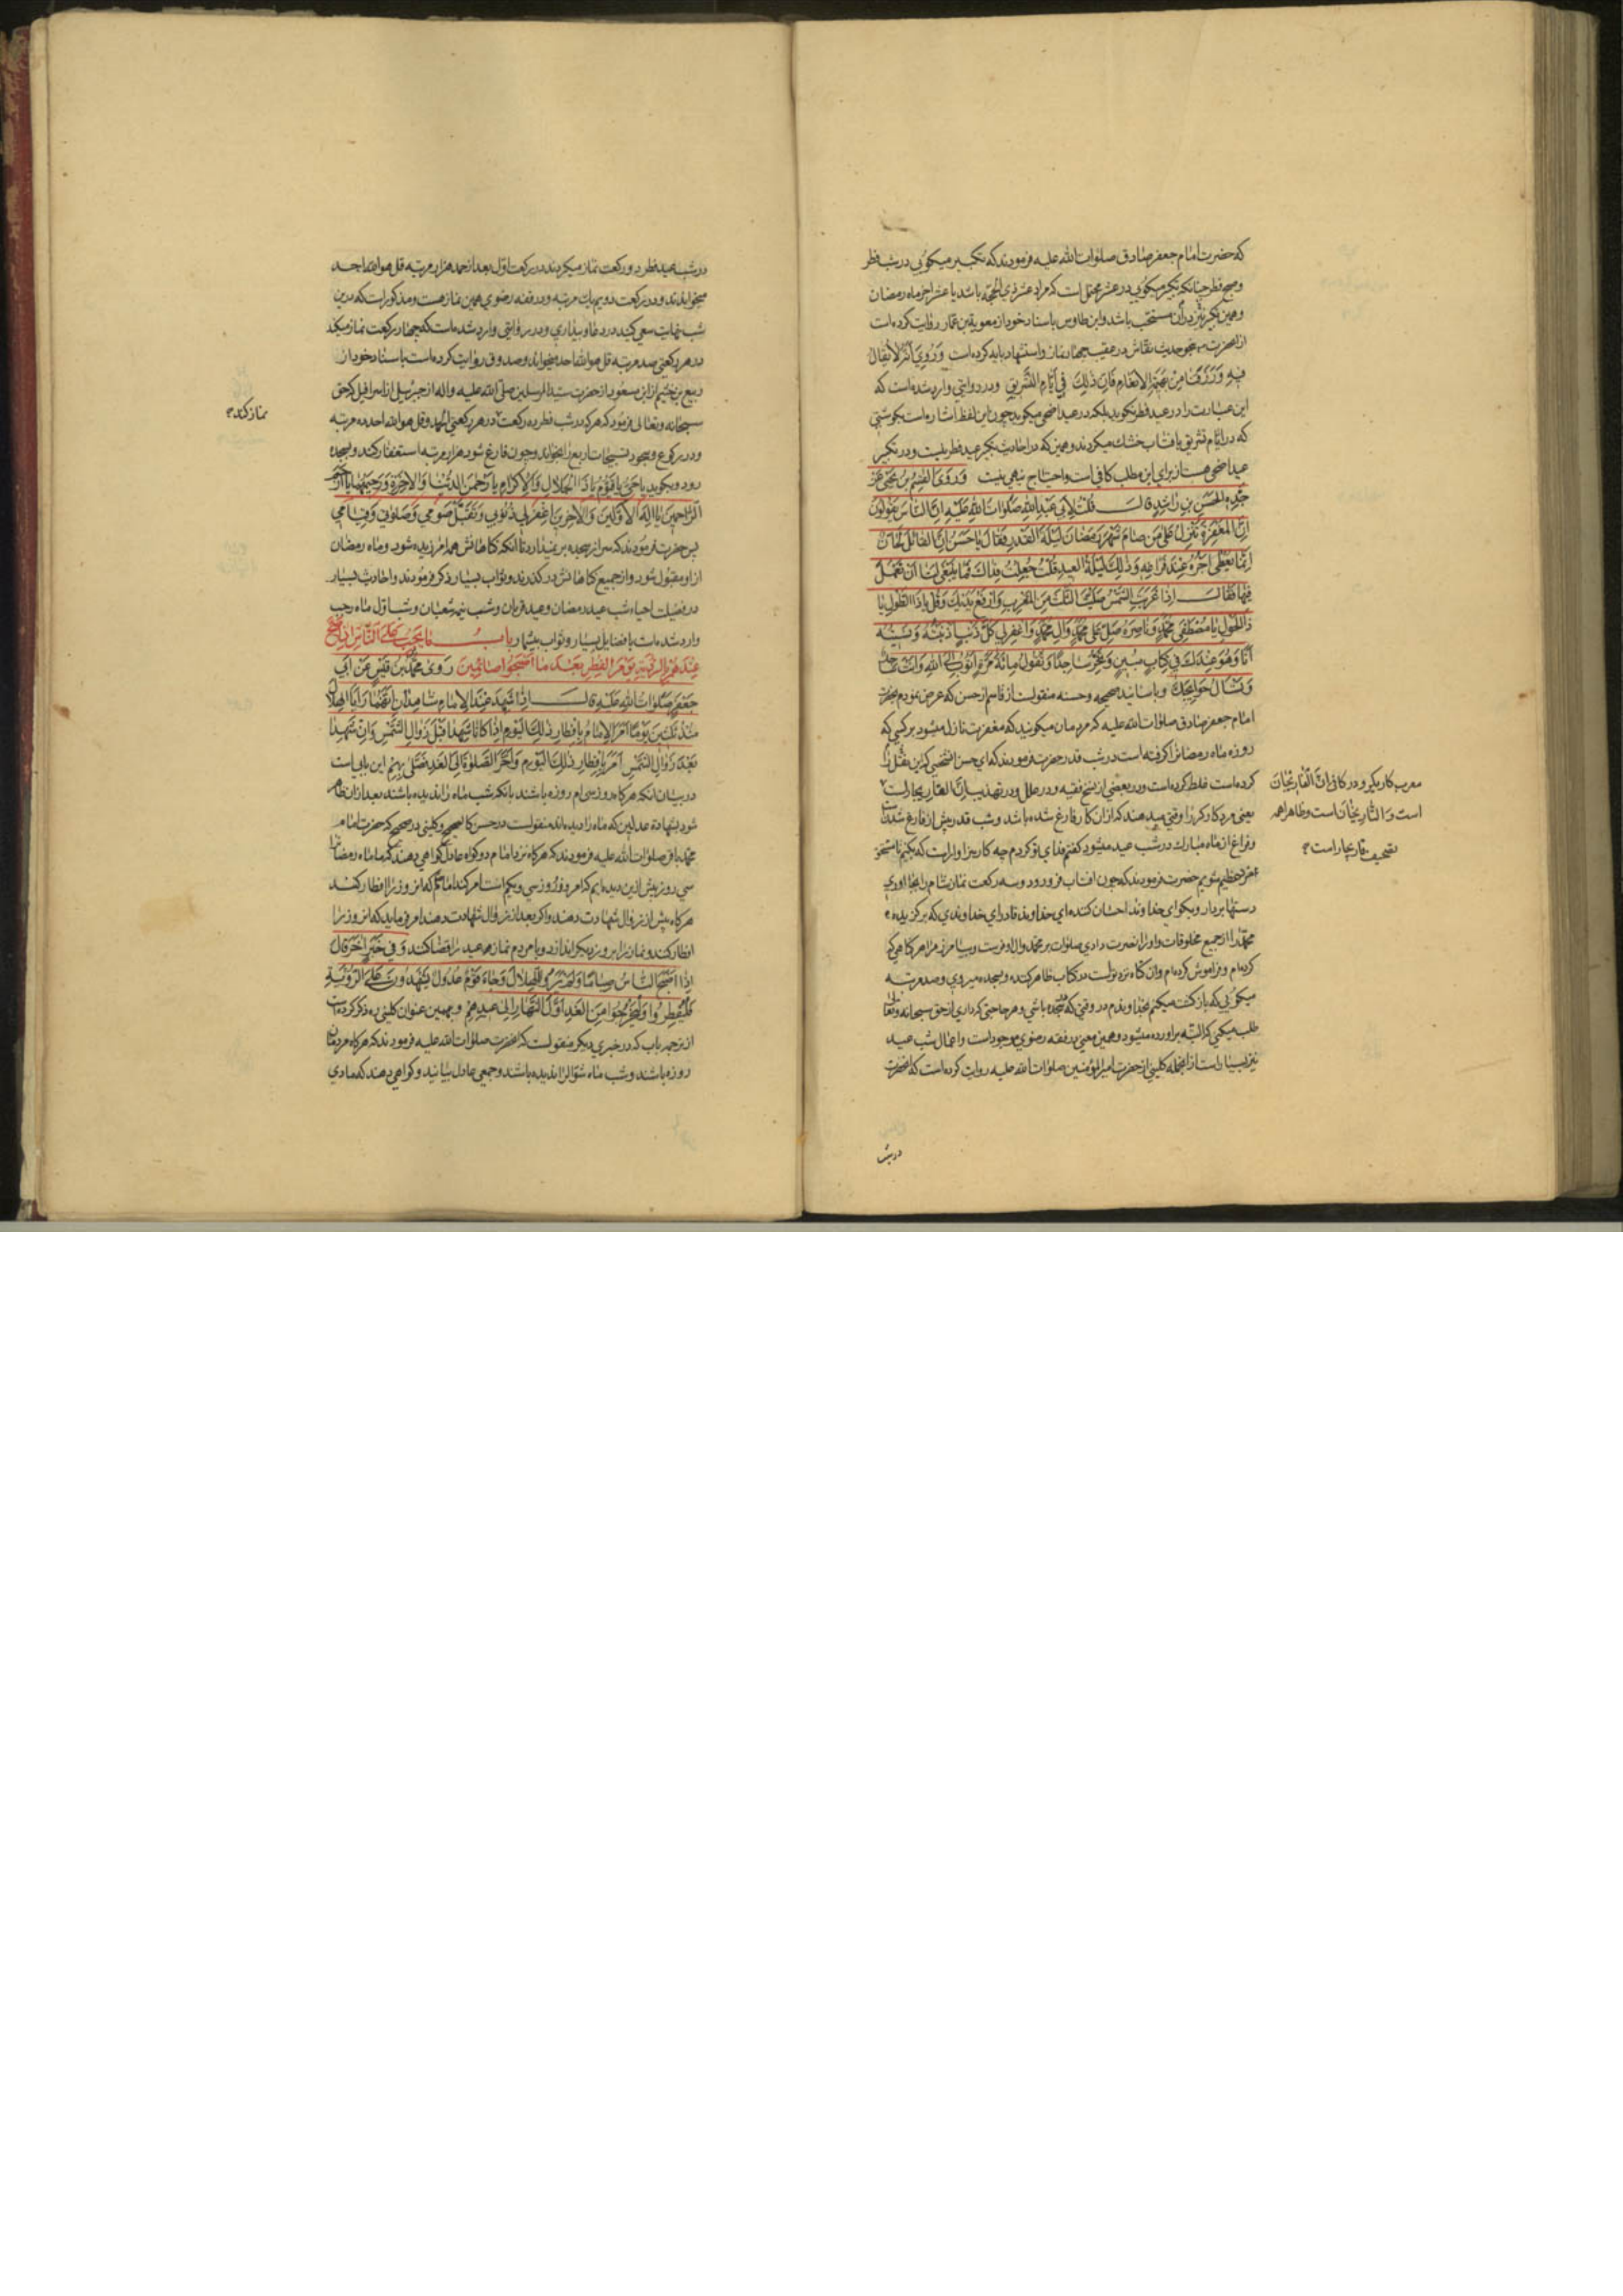 که حضرت امام جعفر صادق صلوات الله علیه فرمودند که تکبیر میکوئی در شب فطر
و صبح فطر چنانکه تکبیر میکوئی در عشر محتمل است که مراد عشر ذی الحجّه باشد یا عشر اخر ماه رمضان
و همین تکبیر نیز در آن مستحب باشد و ابن طاوس باسناد خود از معویة بن عمار روایت کرده است
از انحضرت نحو حدیث نقاش در عقیب چهار نماز و استشهاد بایه کرده است وَرُوِيَ اَنَّهُ لا يُقالُ
فيهِ وَرَزَقَنا مِنْ بَهيمَةِ الاَنْعامِ فَاِنَّ ذلِكَ في اَيّامِ التَّشْريقِ و در روایتی وارد شده است که
این عبارت را در عید فطر نکوید بلکه در عید اضحی میکوید چون این لفظ اشاره است بکوشتی
که در ایام تشریق بافتاب خشك میکردند و همین که در احادیث تکبیر عید فطر نیست و در تکبیر
عید اضحی هست از برای این مطلب کافی است و احتیاج بنهی نیست وَرَوَى القاسِمُ بْنُ يَحْيى عَنْ
جَدِّهِ الحَسَنِ بنِ راشِدٍ قالَ قُلْتُ لاَبي عَبْدِ اللهِ صَلَواتُ اللهِ عَلَيْهِ اِنَّ النّاسَ يَقُولُونَ
اِنَّ المَغْفِرَةَ تَنْزِلُ عَلى مَنْ صامَ شَهْرَ رَمَضانَ لَيْلَةَ القَدْرِ فَقالَ يا حَسَنُ اِنَّ القائِلَ لحان
اِنَّما يُعْطى اَجْرَهُ عِنْدَ فَراغِهِ وَذلِكَ لَيْلَةُ العيدِ قُلْتُ جُعِلْتُ فِداكَ فَما يَنْبَغي لَنا اَنْ نَعْمَلَ
فيها فَقالَ اِذا غَرَبَتِ الشَّمْسُ صَلَّيْتَ الثَّلثَ مِنَ المَغْرِبِ وَارْفَعْ يَدَيْكَ وَقُلْ يا ذَا الطَّولِ يا
ذَا الحَولِ يا مُصْطَفِيَ مُحَمَّدٍ وَناصِرَهُ صَلِّ عَلى مُحَمَّدٍ وَالِ مُحَمَّدٍ وَاغْفِرْ لي كُلَّ ذَنْبٍ اَذْنَبْتُهُ وَنَسيتُهُ
اَنَا وَهُوَ عِنْدَكَ في كِتابٍ مُبينٍ وَتَخِرُّ ساجِدًا وَتَقُولُ مِائَةَ مَرَّةٍ اَتُوبُ اِلَى اللهِ وَاَنْتَ ساجِدٌ
وَتَسْأَلُ حَوائِجَكَ و باسانید صحیحه و حسنه منقولست از قاسم از حسن که عرض نمودم بحضرت
امام جعفر صادق صلوات الله علیه که مردمان میکویند که مغفرت نازل میشود بر کسی که
روزه ماه رمضان را کرفته است در شب قدر حضرت فرمودند که ای حسن شخصی که این نقل را
کرده است غلط کرده است و در بعضی از نسخ فقیه و در علل و در تهذیب انّ القاریجار است
یعنی مزد کارکر را وقتی میدهند که از ان کار فارغ شده باشد و شب قدر پیش از فارغ شدنست
و فراغ از ماه مبارك در شب عید میشود کفتم فدای تو کردم چه کار سزاوار است که بکنیم تا مستحق
مزد عظیم شویم حضرت فرمودند که چون افتاب فرو رود و سه رکعت نماز شام را بجا اوری
دستها بردار و بکو ای خداوند احسان کننده ای خداوند قادر ای خداوندی که بر کزیده
محمّد را از جمیع مخلوقات و او را نصرت دادی صلوات بر محمّد و ال او فرست و بیامرز مرا هر کناهی که
کرده ام و فراموش کرده ام و ان کناه نزد تو است در کتاب ظاهر کننده و بسجده میروی و صد مرتبه
میکوئی که بازکشت میکنم بخداوندم در وقتی که در سجده باشی و هر حاجتی که داری از حق سبحانه و تعالی
طلب میکنی که البته براورده میشود و همین معنی در فقه رضوی موجود است و اعمال شب عید
نیز بسیار است از انجمله کلینی از حضرت امیر المؤمنین صلوات الله علیه روایت کرده است که انحضرت
معرب کاریکر و در کافی انّ القاریجان
است و الثاریجان است و ظاهرا همه
تصحیف قاریجار است
در شب
در شب عید فطر دو رکعت نماز میکردند در رکعت اوّل بعد از حمد هزار مرتبه قل هو الله احد
میخواندند و در رکعت دویم یك مرتبه و در فقه رضوی همین نماز هست و مذکور است که درین
شب نهایت سعی کنید در دعا و بیداری و در روایتی وارد شده است که چهارده رکعت نماز میکند
در هر رکعتی صد مرتبه قل هو الله احد میخواند و صدوق روایت کرده است باسناد خود از
ربیع بن خثیم از ابن مسعود از حضرت سیّد المرسلین صلّی الله علیه و اله از جبرئیل از اسرافیل که حق
سبحانه و تعالی فرمود که هر که در شب فطر ده رکعت در هر رکعتی الحمد و قل هو الله احد ده مرتبه
و در رکوع و سجود تسبیحات اربع را بخواند و چون فارغ شود هزار مرتبه استغفار کند و بسجده
رود و بکوید یا حَيُّ یا قَيُّومُ يا ذَا الجَلالِ وَالاِكْرامِ يا رَحْمنَ الدُّنْيا وَالاخِرَةِ وَرَحيمَهُما يا اَرْحَمَ
الرّاحِمينَ يا اِلهَ الاَوَّلينَ وَالاخِرينَ اِغْفِرْ لي ذُنُوبي وَتَقَبَّلْ صَوْمي وَصَلوتي وَقِيامي
پس حضرت فرمودند که سر از سجده بر نمیدارد تا انکه کناهانش همه امرزیده شود و ماه رمضان
از او مقبول شود و از جمیع کناهانش در کذرند و ثواب بسیار ذکر فرمودند و احادیث بسیار
در فضیلت احیاء شب عید رمضان و عید قربان و شب نیمه شعبان و شب اول ماه رجب
وارد شده است با فضایل بسیار و ثواب بیشمار بابُ ما يَجِبُ عَلَى النّاسِ اِذا صَحَّ
عِنْدَهُمْ بِالرُّؤْيَةِ يَوْمَ الفِطْرِ بَعْدَ ما اَصْبَحُوا صائِمينَ رَوى مُحَمَّدُ بْنُ قَيْسٍ عَنْ اَبي
جَعْفَرٍ صَلَواتُ اللهِ عَلَيْهِ قالَ اِذا شَهِدَ عِنْدَ الاِمامِ شاهِدانِ اَنَّهُما رَاَيَا الهِلالَ
مُنْذُ ثَلثينَ يَوْمًا اَمَرَ الاِمامُ بِاِفْطارِ ذلِكَ اليَوْمِ اِذا كانا شَهِدا قَبْلَ زَوالِ الشَّمْسِ وَاِنْ شَهِدا
بَعْدَ زَوالِ الشَّمْسِ اَمَرَ بِاِفْطارِ ذلِكَ اليَوْمِ وَاَخَّرَ الصَّلوةَ اِلَى الغَدِ فَصَلّى بِهِمْ این بابی است
در بیان انکه هر کاه روز سی ام روزه باشند بانکه شب ماه را ندیده باشند بعد از ان ظاهر
شود بشهادت عدلین که ماه را دیده اند منقولست در حسن کالصحیح و کلینی در صحیح که حضرت امام
محمّد باقر صلوات الله علیه فرمودند که هر کاه نزد امام دو کواه عادل کواهی دهند که ما ماه رمضان را
سی روز پیش ازین دیده ایم که امروز روز سی و یکم است امر کند امام که ان روز را افطار کنند
هر کاه پیش از زوال شهادت دهند و اکر بعد از زوال شهادت دهند امر فرماید که ان روز را
افطار کنند و نماز را بروز دیکر اندازد و با مردم نماز عید را قضا کند وَفي خَبَرٍ اخَرَ قالَ
اِذا اَصْبَحَ النّاسُ صِيامًا وَلَمْ يَرَوُا الهِلالَ وَجاءَ قَوْمٌ عُدُولٌ يَشْهَدُونَ عَلَى الرُّؤْيَةِ
فَلْيُفْطِرُوا وَلْيَخْرُجُوا مِنَ الغَدِ اَوَّلَ النَّهارِ اِلى عيدِهِمْ و بهمین عنوان کلینی ره ذکر کرده است
از ترجمه باب که در خبری دیکر منقولست که انحضرت صلوات الله علیه فرمودند که هر کاه مردمان
روزه باشند و شب ماه شوال را ندیده باشند و جمعی عادل بیایند و کواهی دهند که ما دی
نماز کند